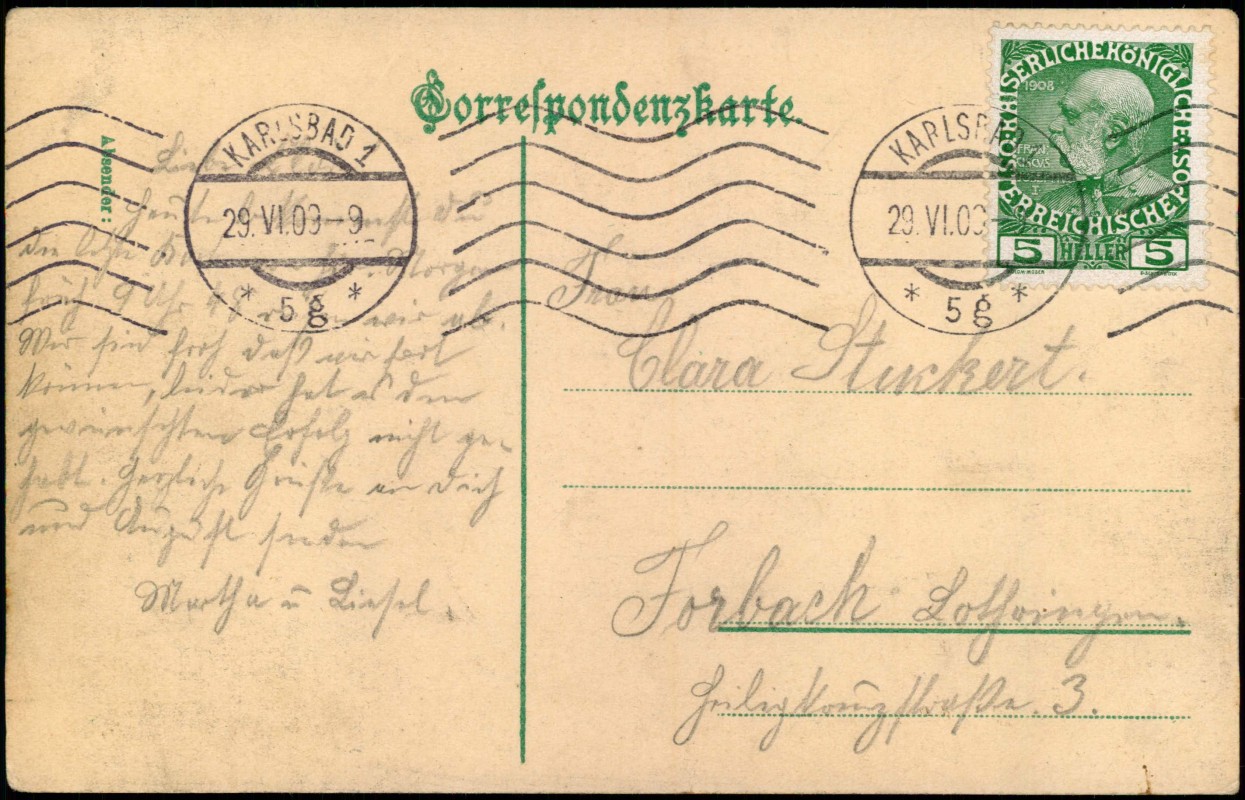 Correspondenzkarte.
Absender:
KARLSBAD 1
29. VI. 09-9
* 5g *
KARLSBAD
29. VI. 09
* 5g *
KAISERLICHE KÖNIGLICHE ÖSTERREICHISCHE POST
1908
FRAN
CISCVS
I
5 HELLER 5
Heute
die Karte Morgen
früh 9 Uhr wir ab.
Wir sind froh daß wir fort
können, leider hat es den
gewünschten Erfolg nicht ge-
habt. Herzliche Grüße an Dich
und August senden
Martha u Liesel.
Frau
Clara Stuckert.
Forbach Lothringen.
Heiligkreuzstraße. 3.